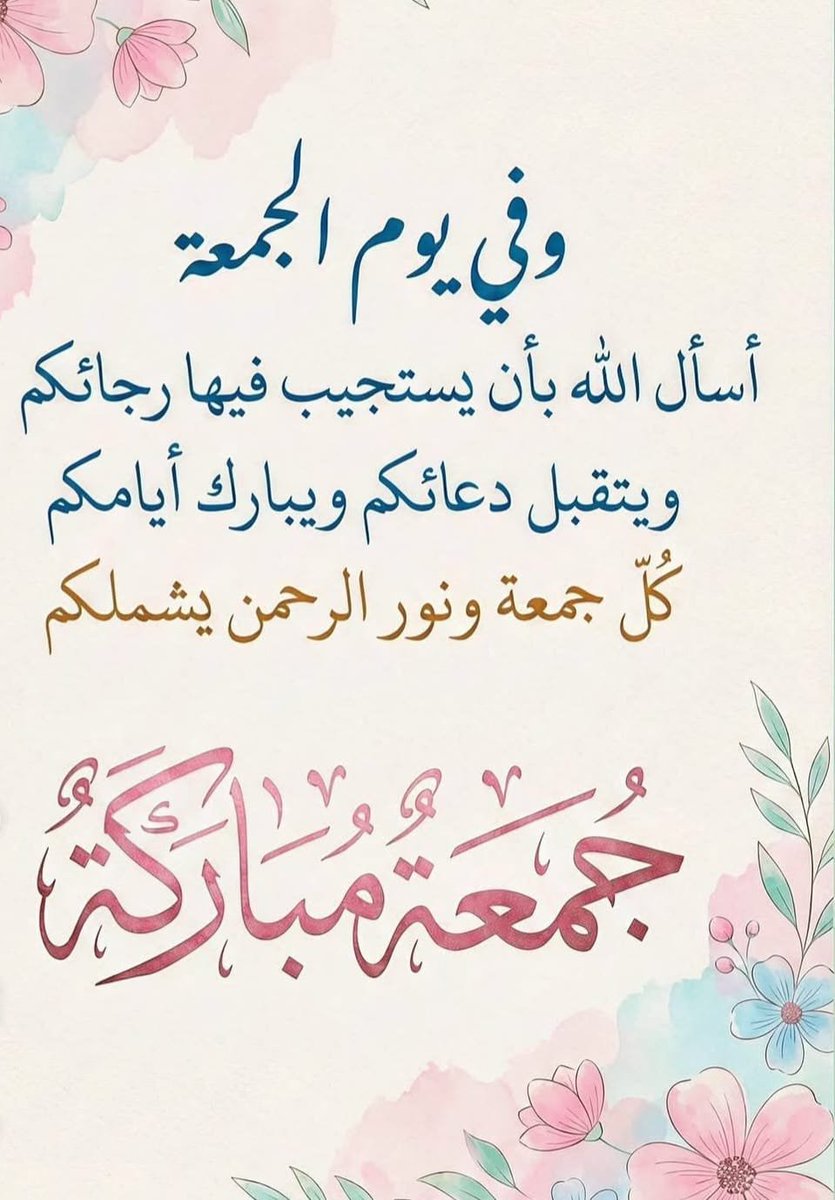 وفي يوم الجمعة
أسأل الله بأن يستجيب فيها رجائكم
ويتقبل دعائكم ويبارك أيامكم
كُلّ جمعة ونور الرحمن يشملكم
جُمَعَةٌ مُبَارَكَةٌ